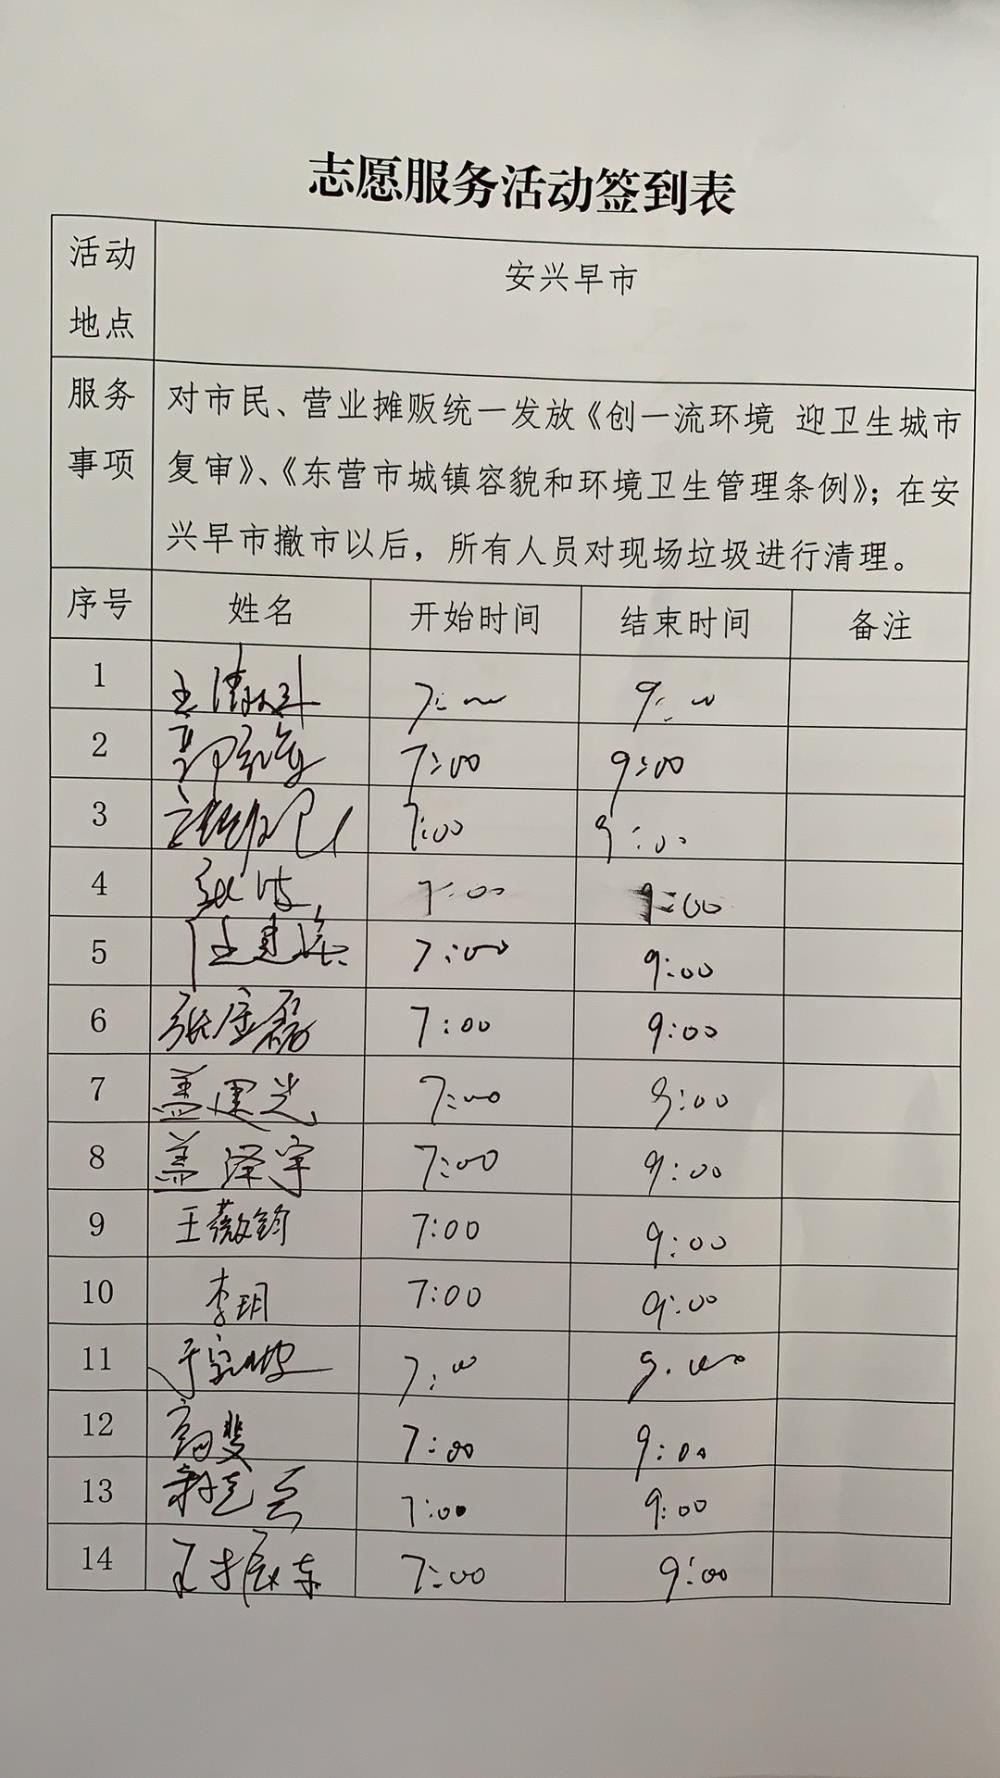 志愿服务活动签到表
活动地点 安兴早市
服务事项 对市民、营业摊贩统一发放《创一流环境 迎卫生城市
复审》、《东营市城镇容貌和环境卫生管理条例》；在安
兴早市撤市以后，所有人员对现场垃圾进行清理。
序号 姓名 开始时间 结束时间 备注
1 7:00 9:00
2 7:00 9:00
3 7:00 9:00
4 张波 7:00 9:00
5 7:00 9:00
6 张金磊 7:00 9:00
7 盖建光 7:00 9:00
8 盖泽宇 7:00 9:00
9 王薇钧 7:00 9:00
10 李玥 7:00 9:00
11 7:00 9:00
12 高斐 7:00 9:00
13 7:00 9:00
14 王振东 7:00 9:00